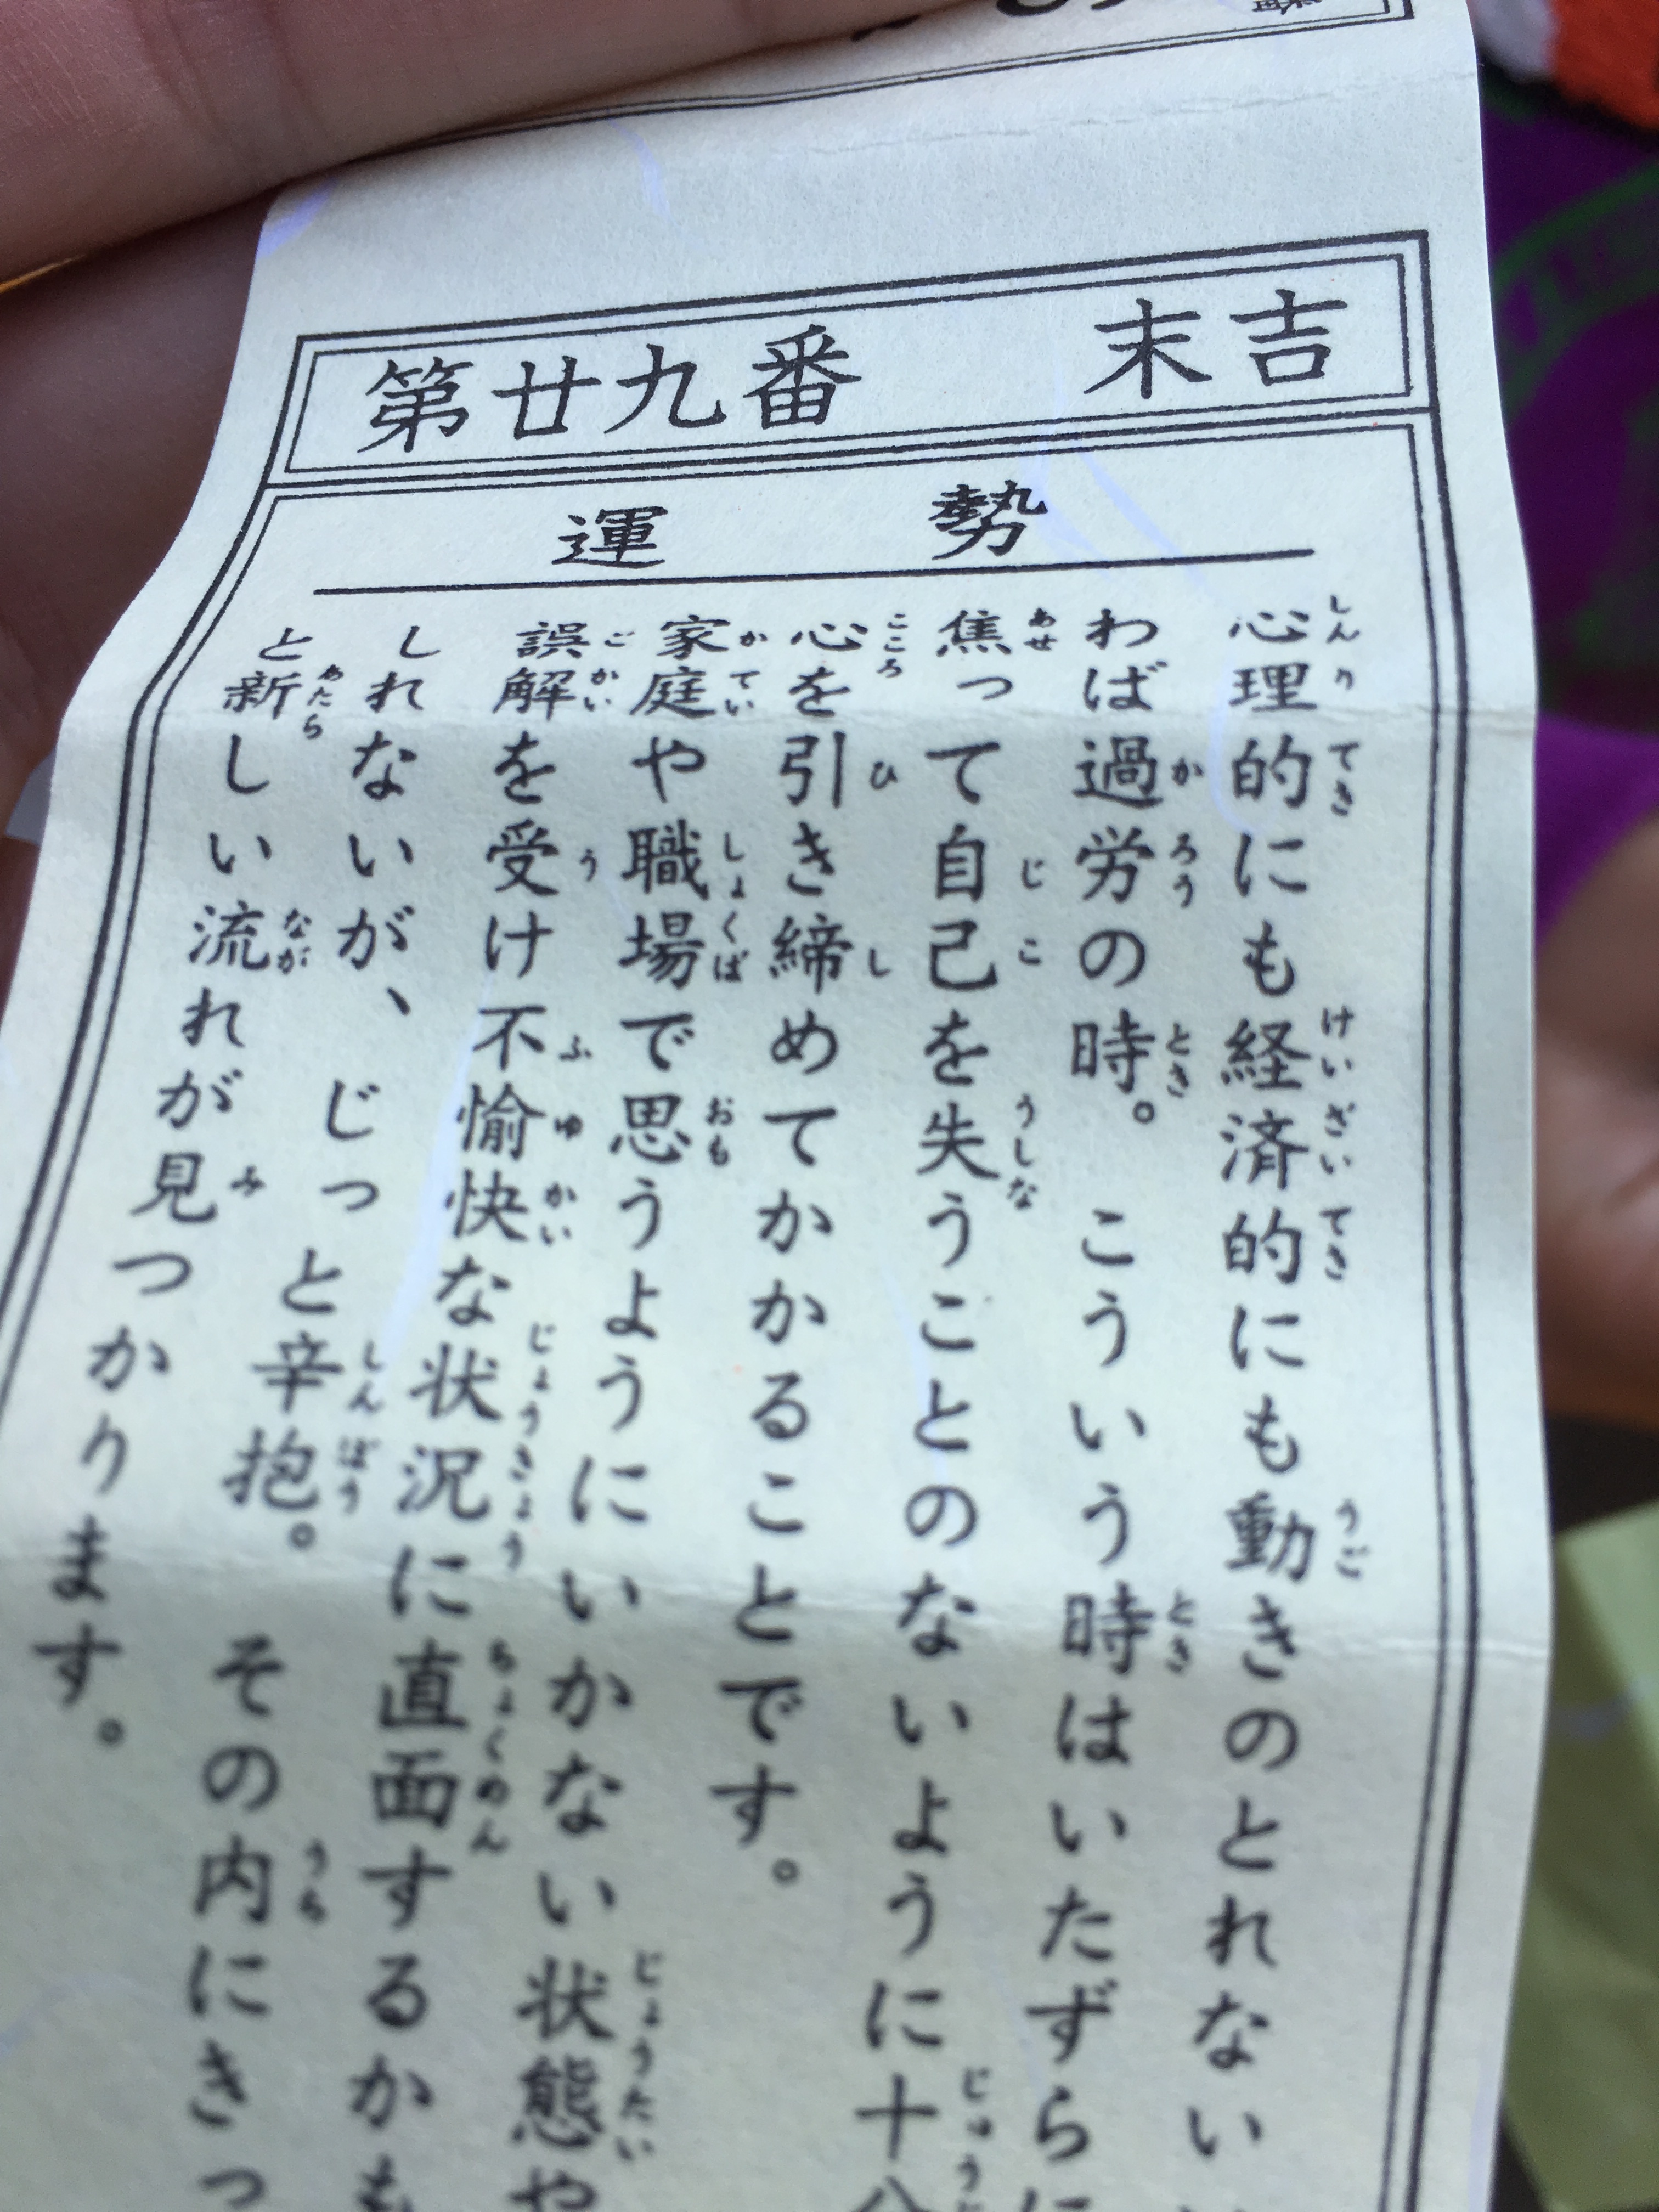 第廿九番 末吉
運勢
心理的にも経済的にも動きのとれない
わば過労の時。こういう時はいたずらに
焦って自己を失うことのないように十
心を引き締めてかかることです。
家庭や職場で思うようにいかない状態や
誤解を受け不愉快な状況に直面するかも
しれないが、じっと辛抱。その内にきっ
と新しい流れが見つかります。